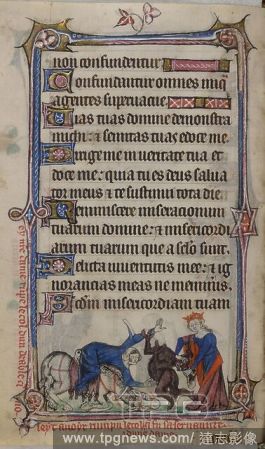 non confundentur
Confundantur omnes iniq
agentes supervacue
Vias tuas domine demonstra
michi: et semitas tuas edoce me
Dirige me in veritate tua et
doce me: quia tu es deus salva
tor meus et te sustinui tota die
Reminiscere miseracionum
tuarum domine: et misericordi
arum tuarum que a seculo sunt
Delicta iuventutis mee: et ig
norancias meas ne memineris
Secundum misericordiam tuam
TPG
www.tpgnews.com / 達志影像